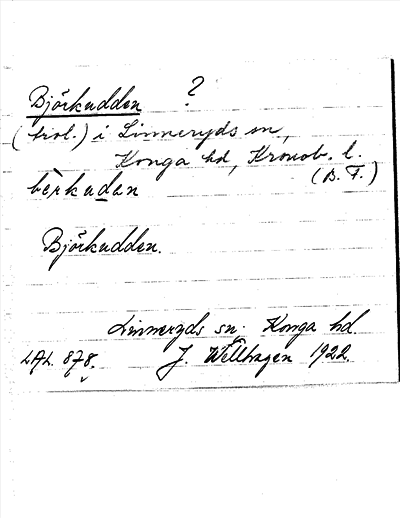 Björkudden ?
(trol.) i Linneryds sn,
Konga hd, Kronob. l.
(B. F.)
bèrkudan
Björkudden.
Linneryds sn. Konga hd.
LAL. 878. J. Wellhagen 1922.